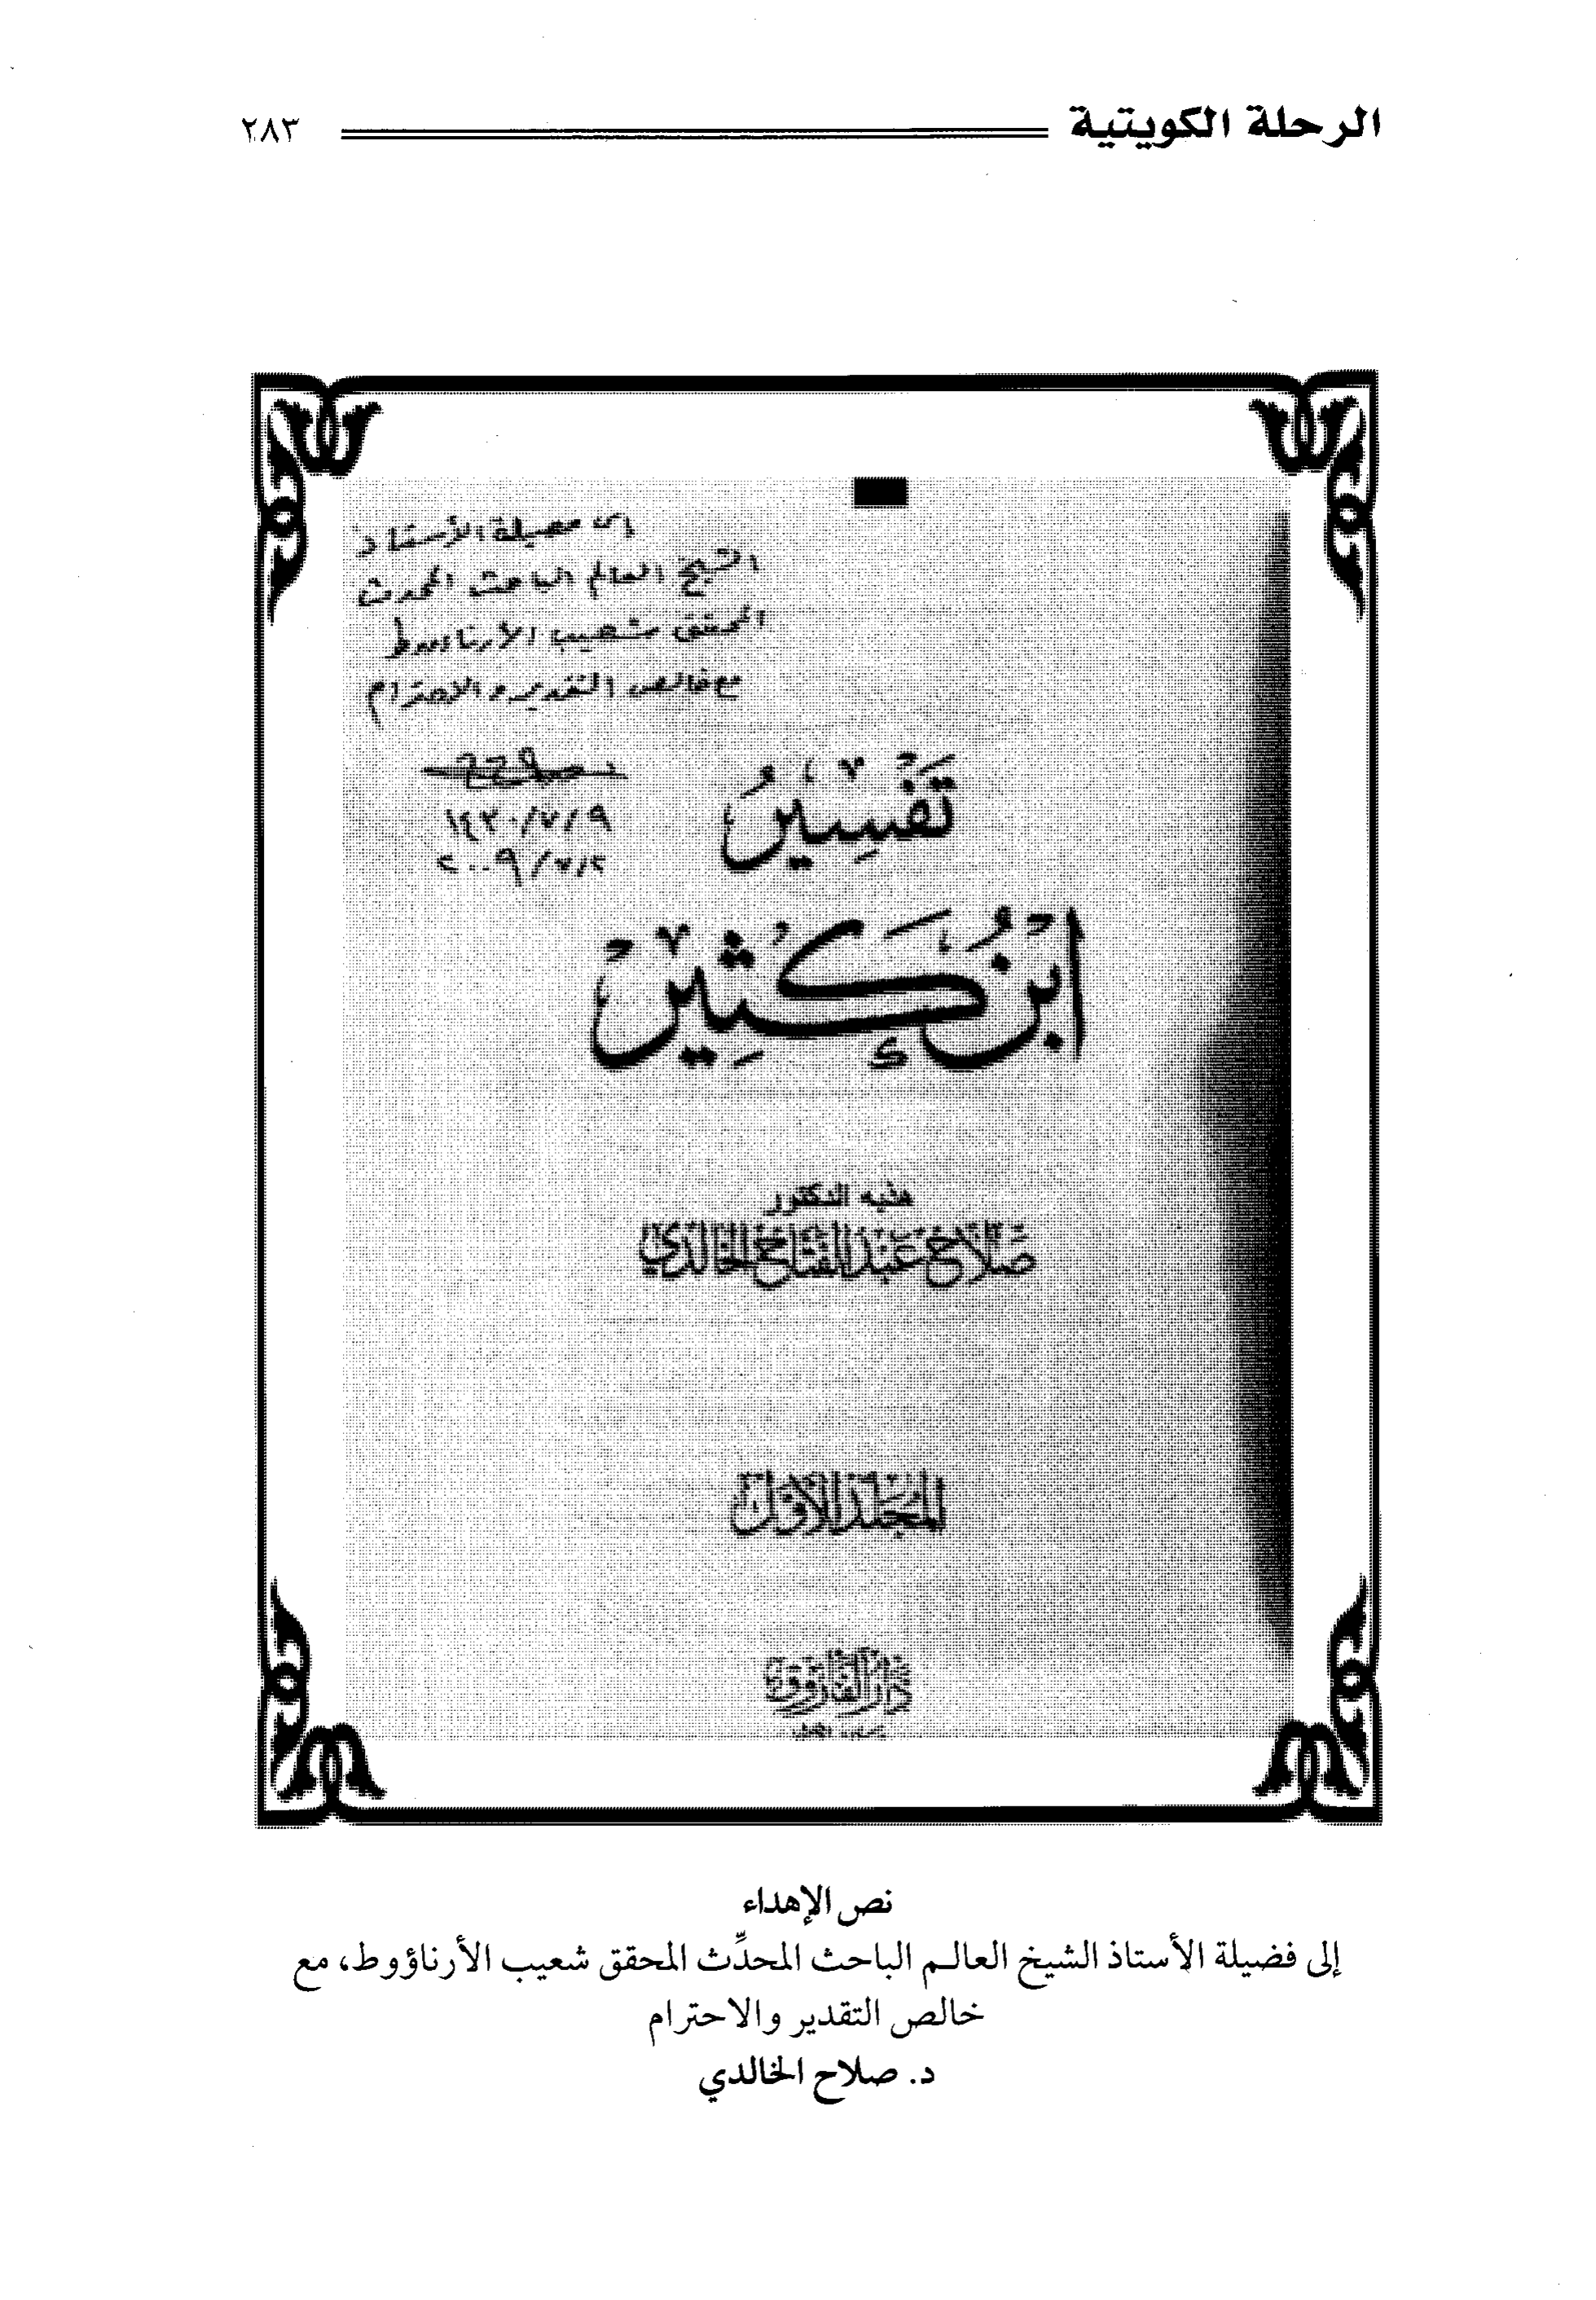 الرحلة الكويتية ٢٨٣
إلى فضيلة الأستاذ
الشيخ العالم الباحث المحدث
المحقق شعيب الأرناؤوط
مع خالص التقدير والاحترام
١٤٣٠/٧/٩
٢٠٠٩/٧/٢
تَفْسِيرُ
ابْنُ كَثِيرْ
هذبه الدكتور
صَلَاح عَبْد الفَتَّاح الخَالدِي
المُجَلَّد الأوَّل
دَارُ الفَارُوق
نص الإهداء
إلى فضيلة الأستاذ الشيخ العالم الباحث المحدِّث المحقق شعيب الأرناؤوط، مع
خالص التقدير والاحترام
د. صلاح الخالدي